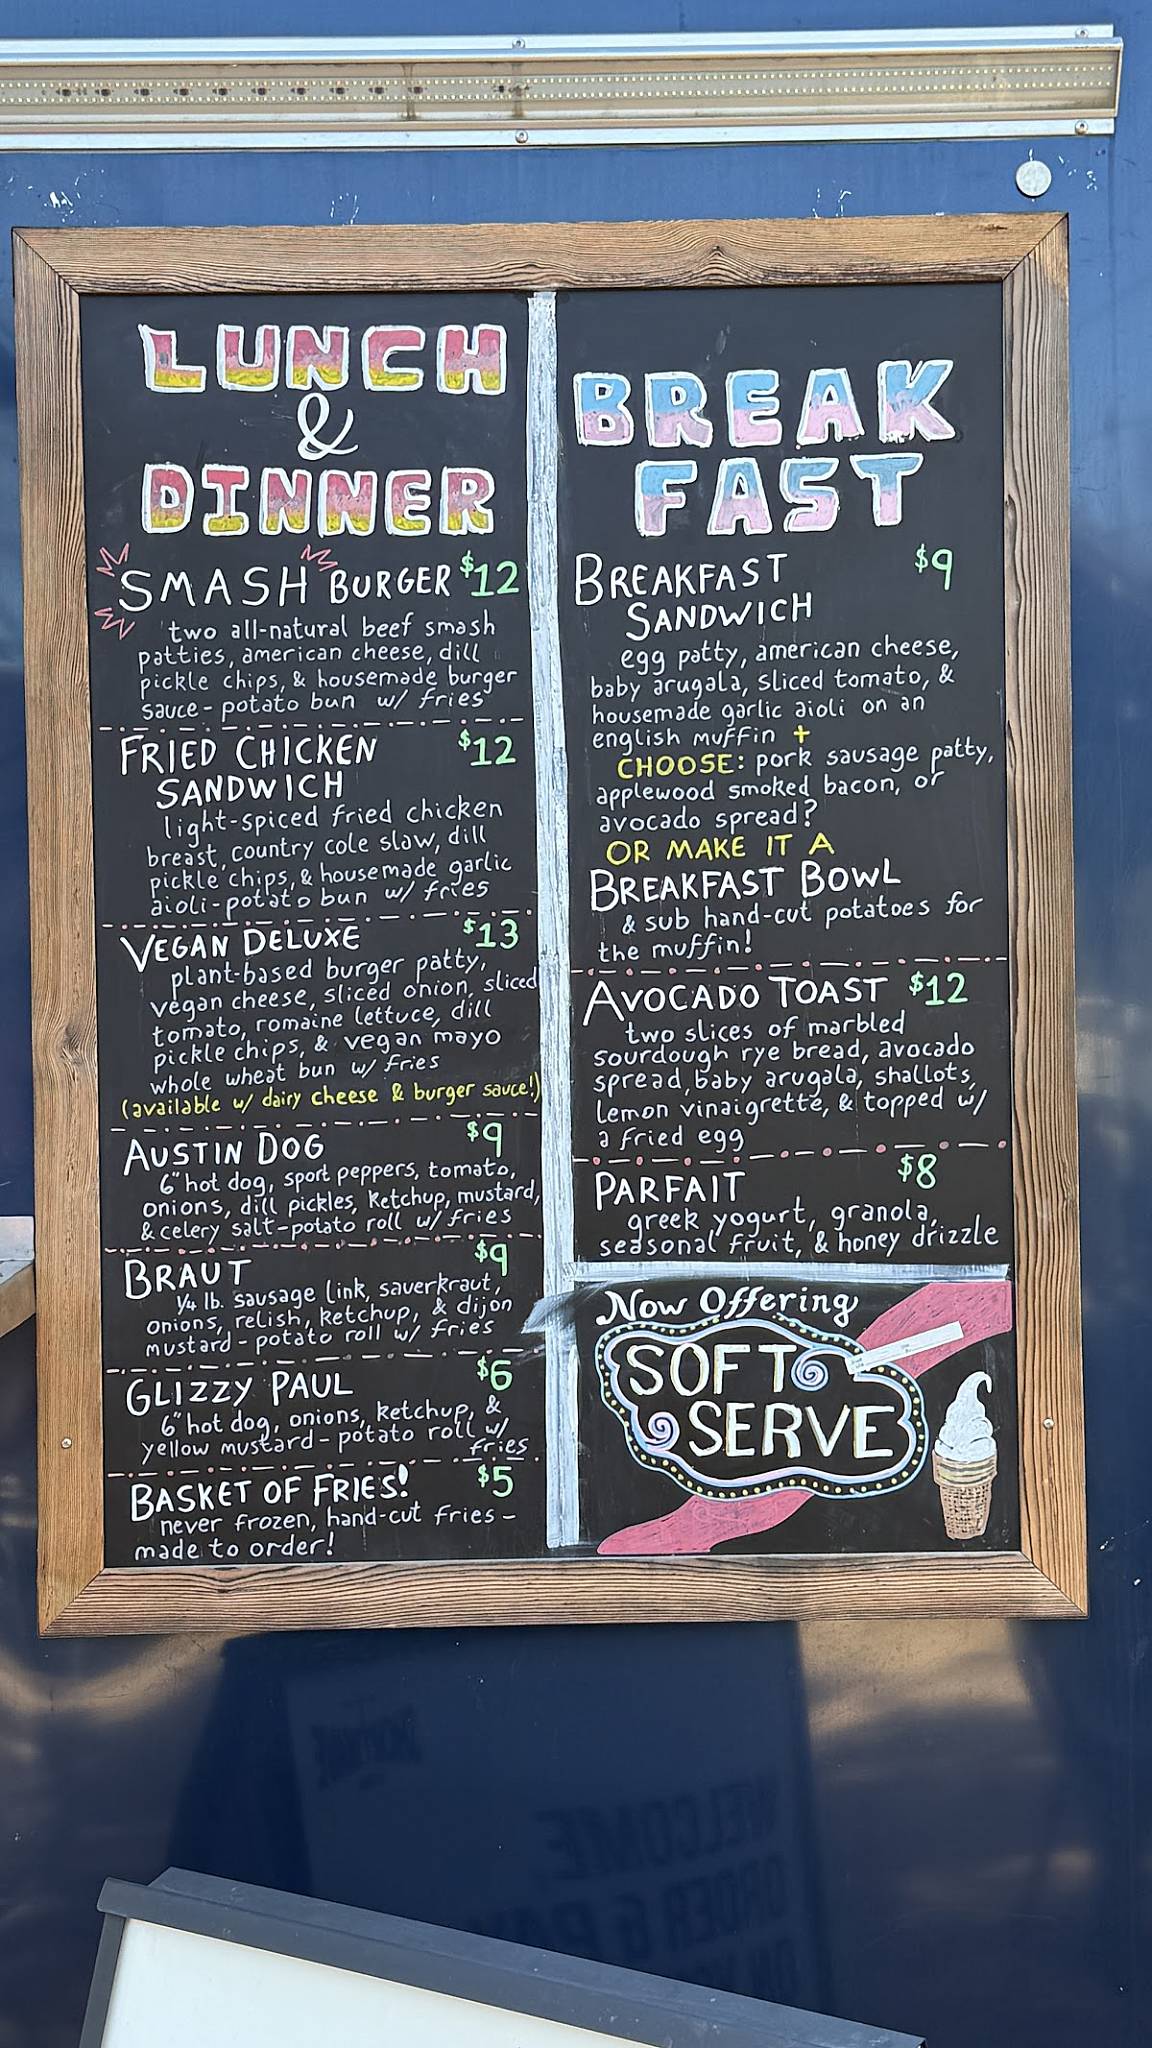 LUNCH
&
DINNER
SMASH BURGER $12
two all-natural beef smash
patties, american cheese, dill
pickle chips, & housemade burger
sauce - potato bun w/ fries
FRIED CHICKEN $12
SANDWICH
light-spiced fried chicken
breast, country cole slaw, dill
pickle chips, & housemade garlic
aioli - potato bun w/ fries
VEGAN DELUXE $13
plant-based burger patty,
vegan cheese, sliced onion, sliced
tomato, romaine lettuce, dill
pickle chips, & vegan mayo
whole wheat bun w/ fries
(available w/ dairy cheese & burger sauce!)
AUSTIN DOG $9
6" hot dog, sport peppers, tomato,
onions, dill pickles, ketchup, mustard,
& celery salt - potato roll w/ fries
BRAUT $9
1/4 lb. sausage link, saverkraut,
onions, relish, ketchup, & dijon
mustard - potato roll w/ fries
GLIZZY PAUL $6
6" hot dog, onions, ketchup, &
yellow mustard - potato roll w/
fries
BASKET OF FRIES! $5
never frozen, hand-cut fries -
made to order!
BREAK
FAST
BREAKFAST $9
SANDWICH
egg patty, american cheese,
baby arugala, sliced tomato, &
housemade garlic aioli on an
english muffin +
CHOOSE: pork sausage patty,
applewood smoked bacon, or
avocado spread?
OR MAKE IT A
BREAKFAST BOWL
& sub hand-cut potatoes for
the muffin!
AVOCADO TOAST $12
two slices of marbled
sourdough rye bread, avocado
spread, baby arugala, shallots,
lemon vinaigrette, & topped w/
a fried egg
PARFAIT $8
greek yogurt, granola,
seasonal fruit, & honey drizzle
Now Offering
SOFT
SERVE
WELCOME
ORDER & PAY